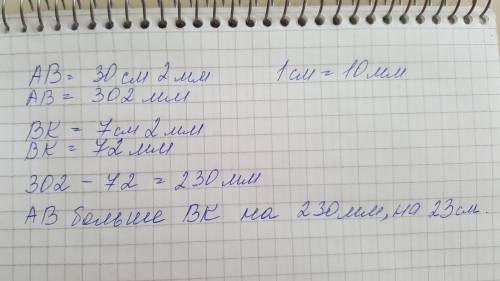 AB = 30 см 2 мм 1 см = 10 мм
AB = 302 мм
BK = 7 см 2 мм
BK = 72 мм
302 - 72 = 230 мм
AB больше BK на 230 мм, на 23 см.